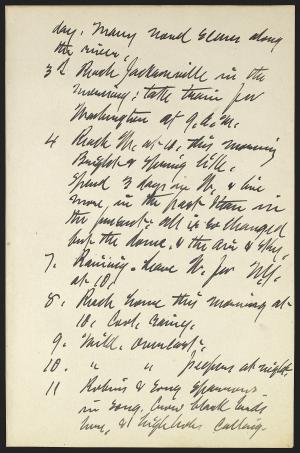 day. Many novel scenes along
the river.
3d Reach Jacksonville in the
morning; take train for
Washington at 9. a.m.
4 Reach W. at 10. this morning
Bright & Spring like.
Spend 3 days in W. & live
more, in the past than in
the present; all is so changed
but the dome, & the air & sky.
7. Raining. Leave W. for N.Y.
at 10.
8. Reach home this morning at
10. Cool, rainy.
9. Mild, overcast.
10. " " freezes at night.
11 Robins & Song Sparrows
in song, Crow black birds
here, & highholes calling.